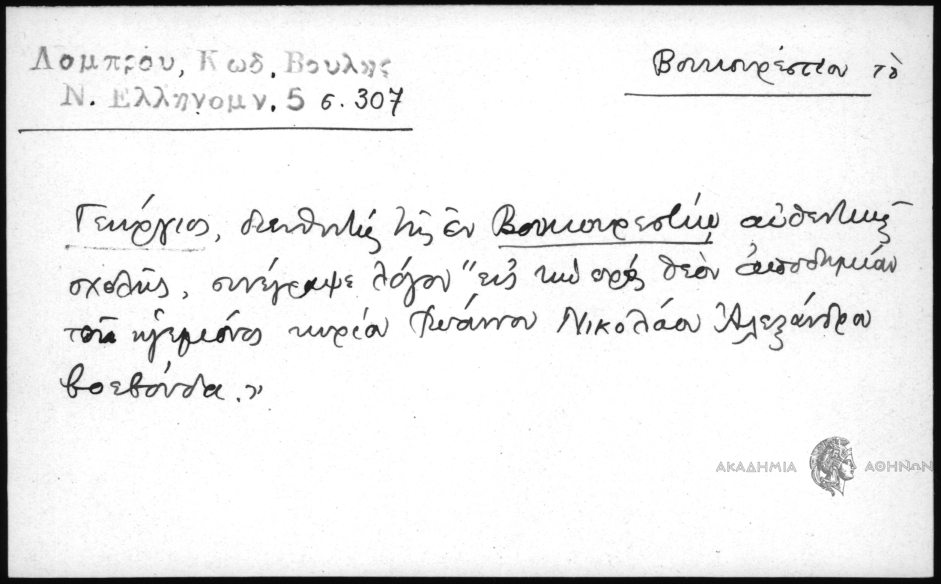 Λομπρου, Κωδ. Βουλης
Ν. Ελληνομν. 5 σ. 307
Βουκουρέστιον τὸ
Γεώργιος, διευθυντὴς τῆς ἐν Βουκουρεστίῳ αὐθεντικῆς
σχολῆς, συνέγραψε λόγον "εἰς τὴν πρὸς θεὸν ἀποδημίαν
τοῦ ἡγεμόνος κυρίου Ἰωάννου Νικολάου Ἀλεξάνδρου
βοεβόνδα."
ΑΚΑΔΗΜΙΑ ΑΘΗΝΩΝ